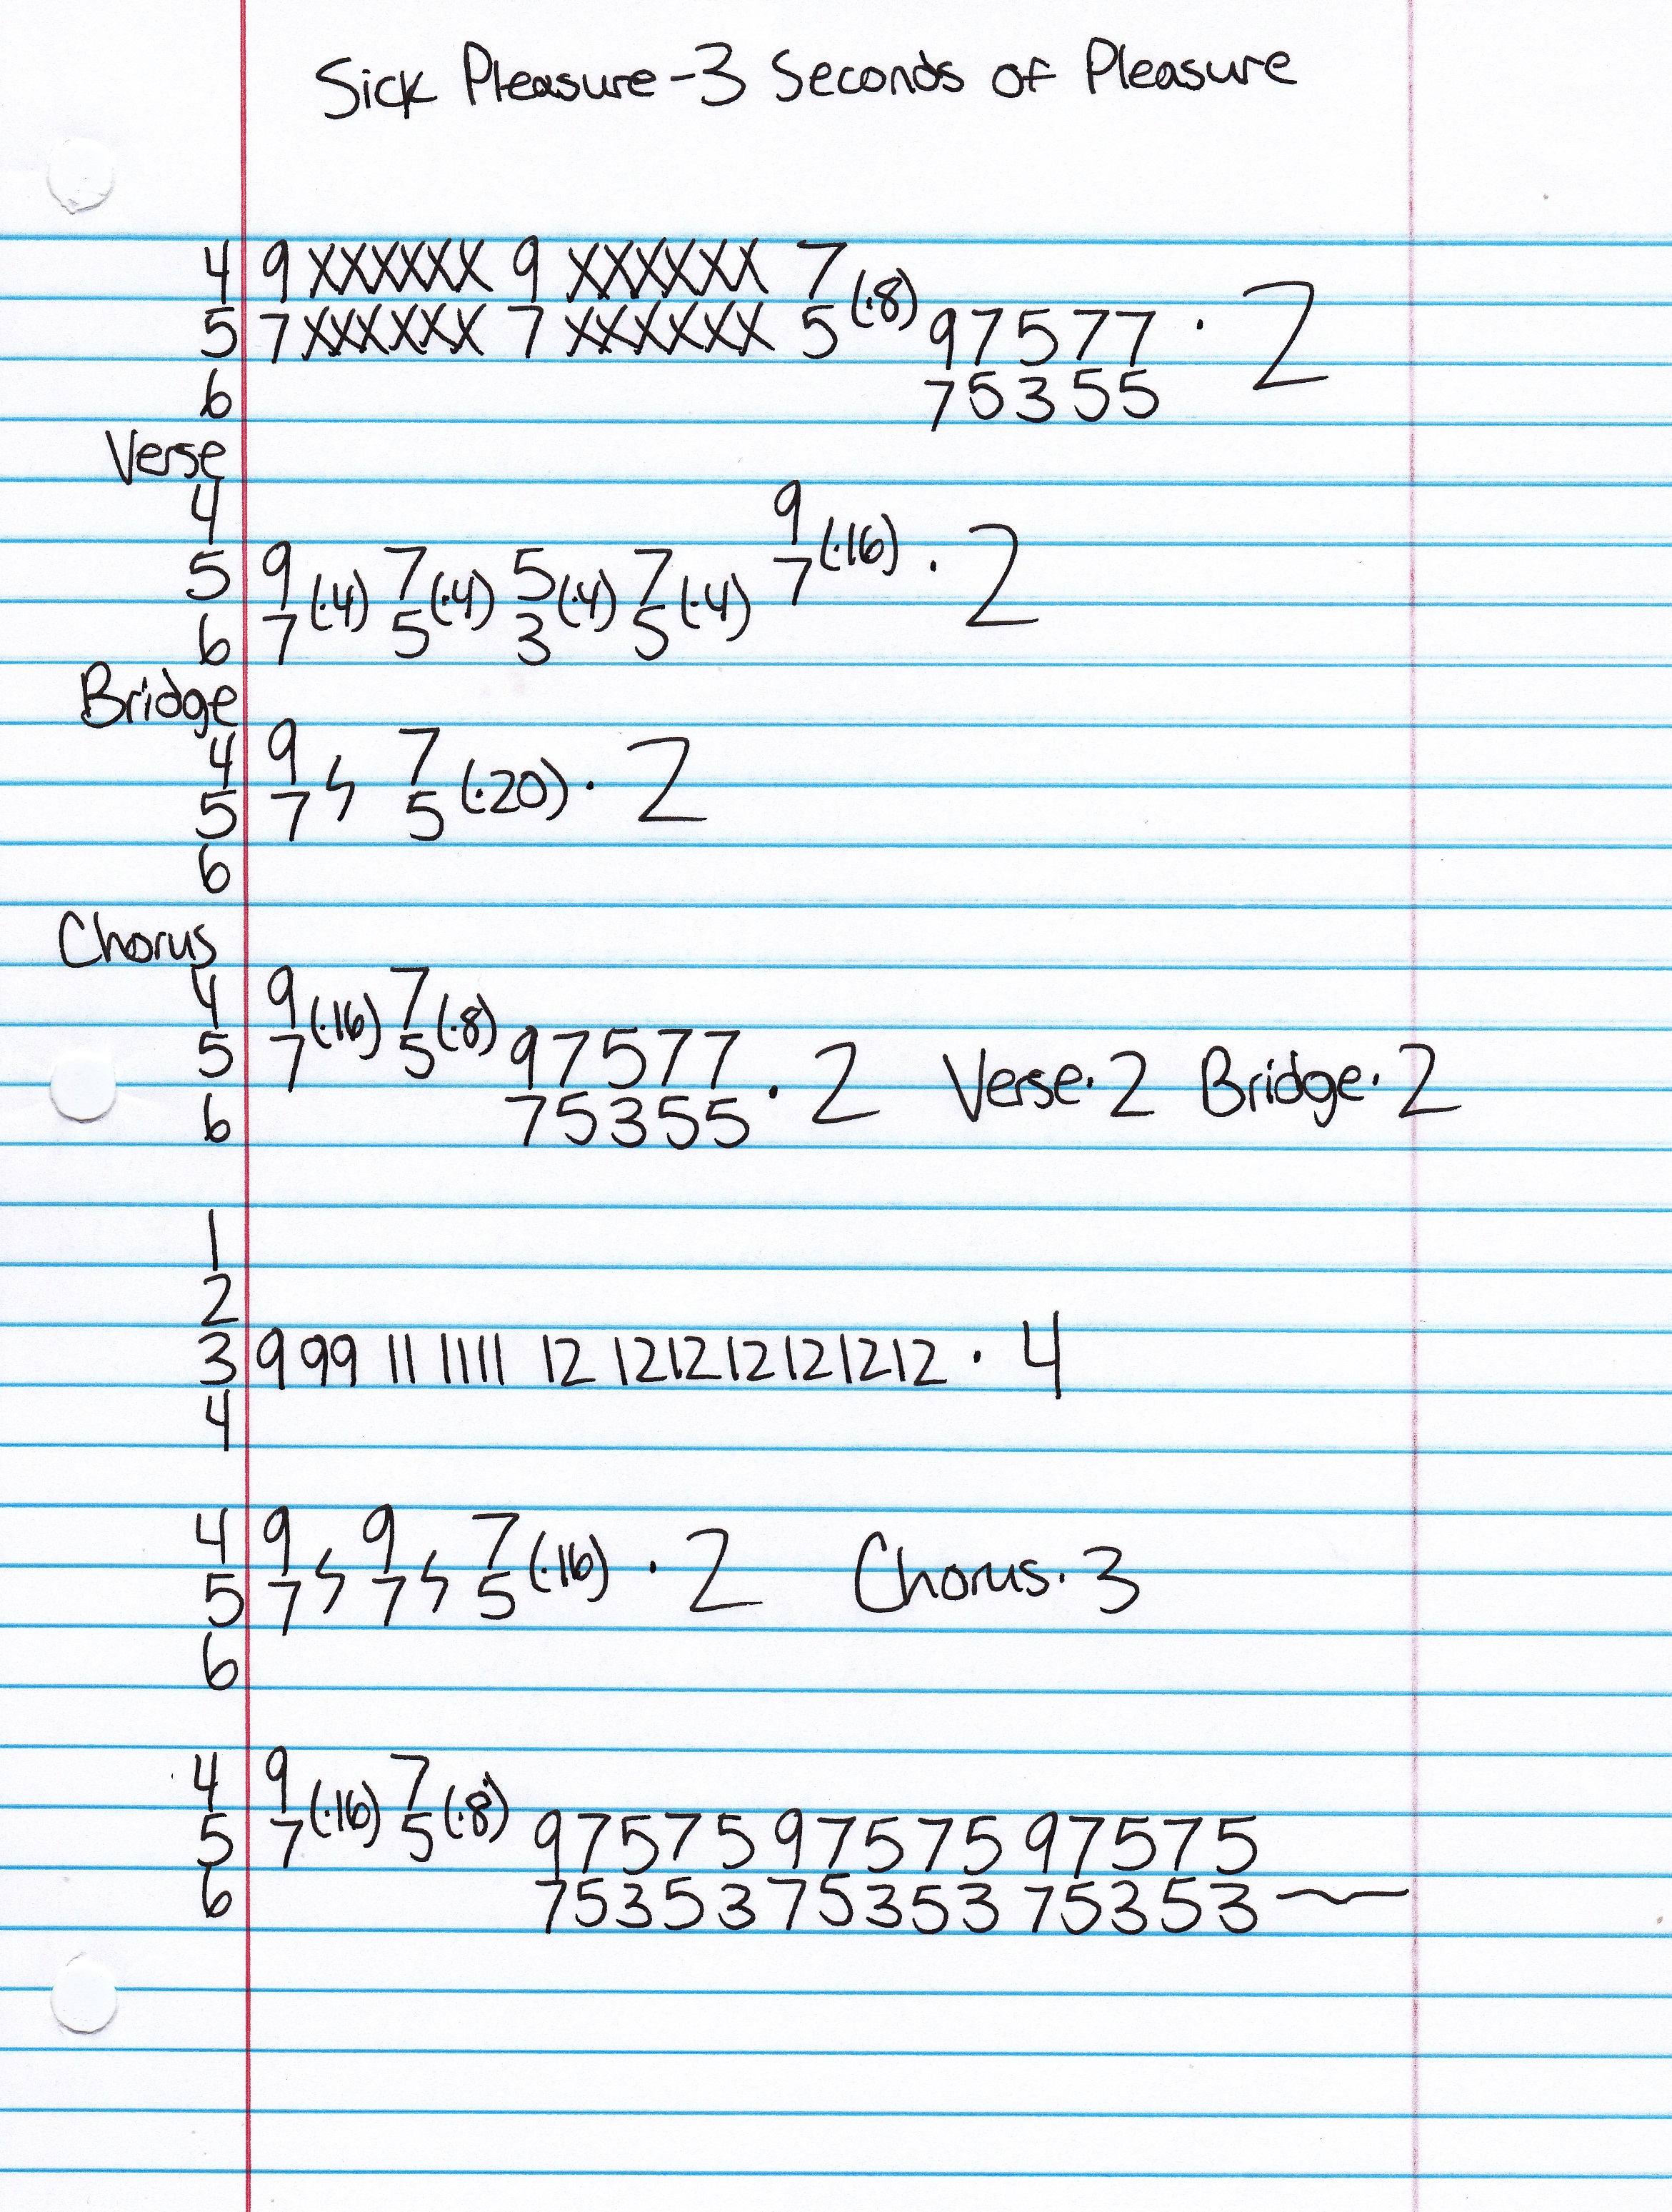 Sick Pleasure-3 Seconds of Pleasure
4 9 XXXXXX 9 XXXXXX 7
5 7 XXXXXX 7 XXXXXX 5 (·8) 97577 · 2
6 75355
Verse
4 9
5 9 (·4) 7 (·4) 5 (·4) 7 (·4) 7 (·16) · 2
6 7 5 3 5
Bridge
4 9 7
5 7 ϟ 5 (·20) · 2
6
Chorus
4 9 7
5 7 (·16) 5 (·8) 97577 · 2 Verse·2 Bridge·2
6 75355
1
2
3 9 99 11 1111 12 121212121212 · 4
4
4 9 9 7
5 7 ϟ 7 ϟ 5 (·16) · 2 Chorus·3
6
4 9 7
5 7 (·16) 5 (·8) 97575 97575 97575
6 75353 75353 75353